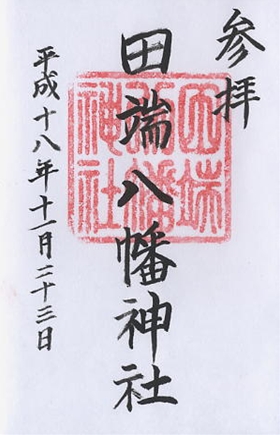 参拝
田端八幡神社
平成十八年十一月二十三日
田端
八幡
神社